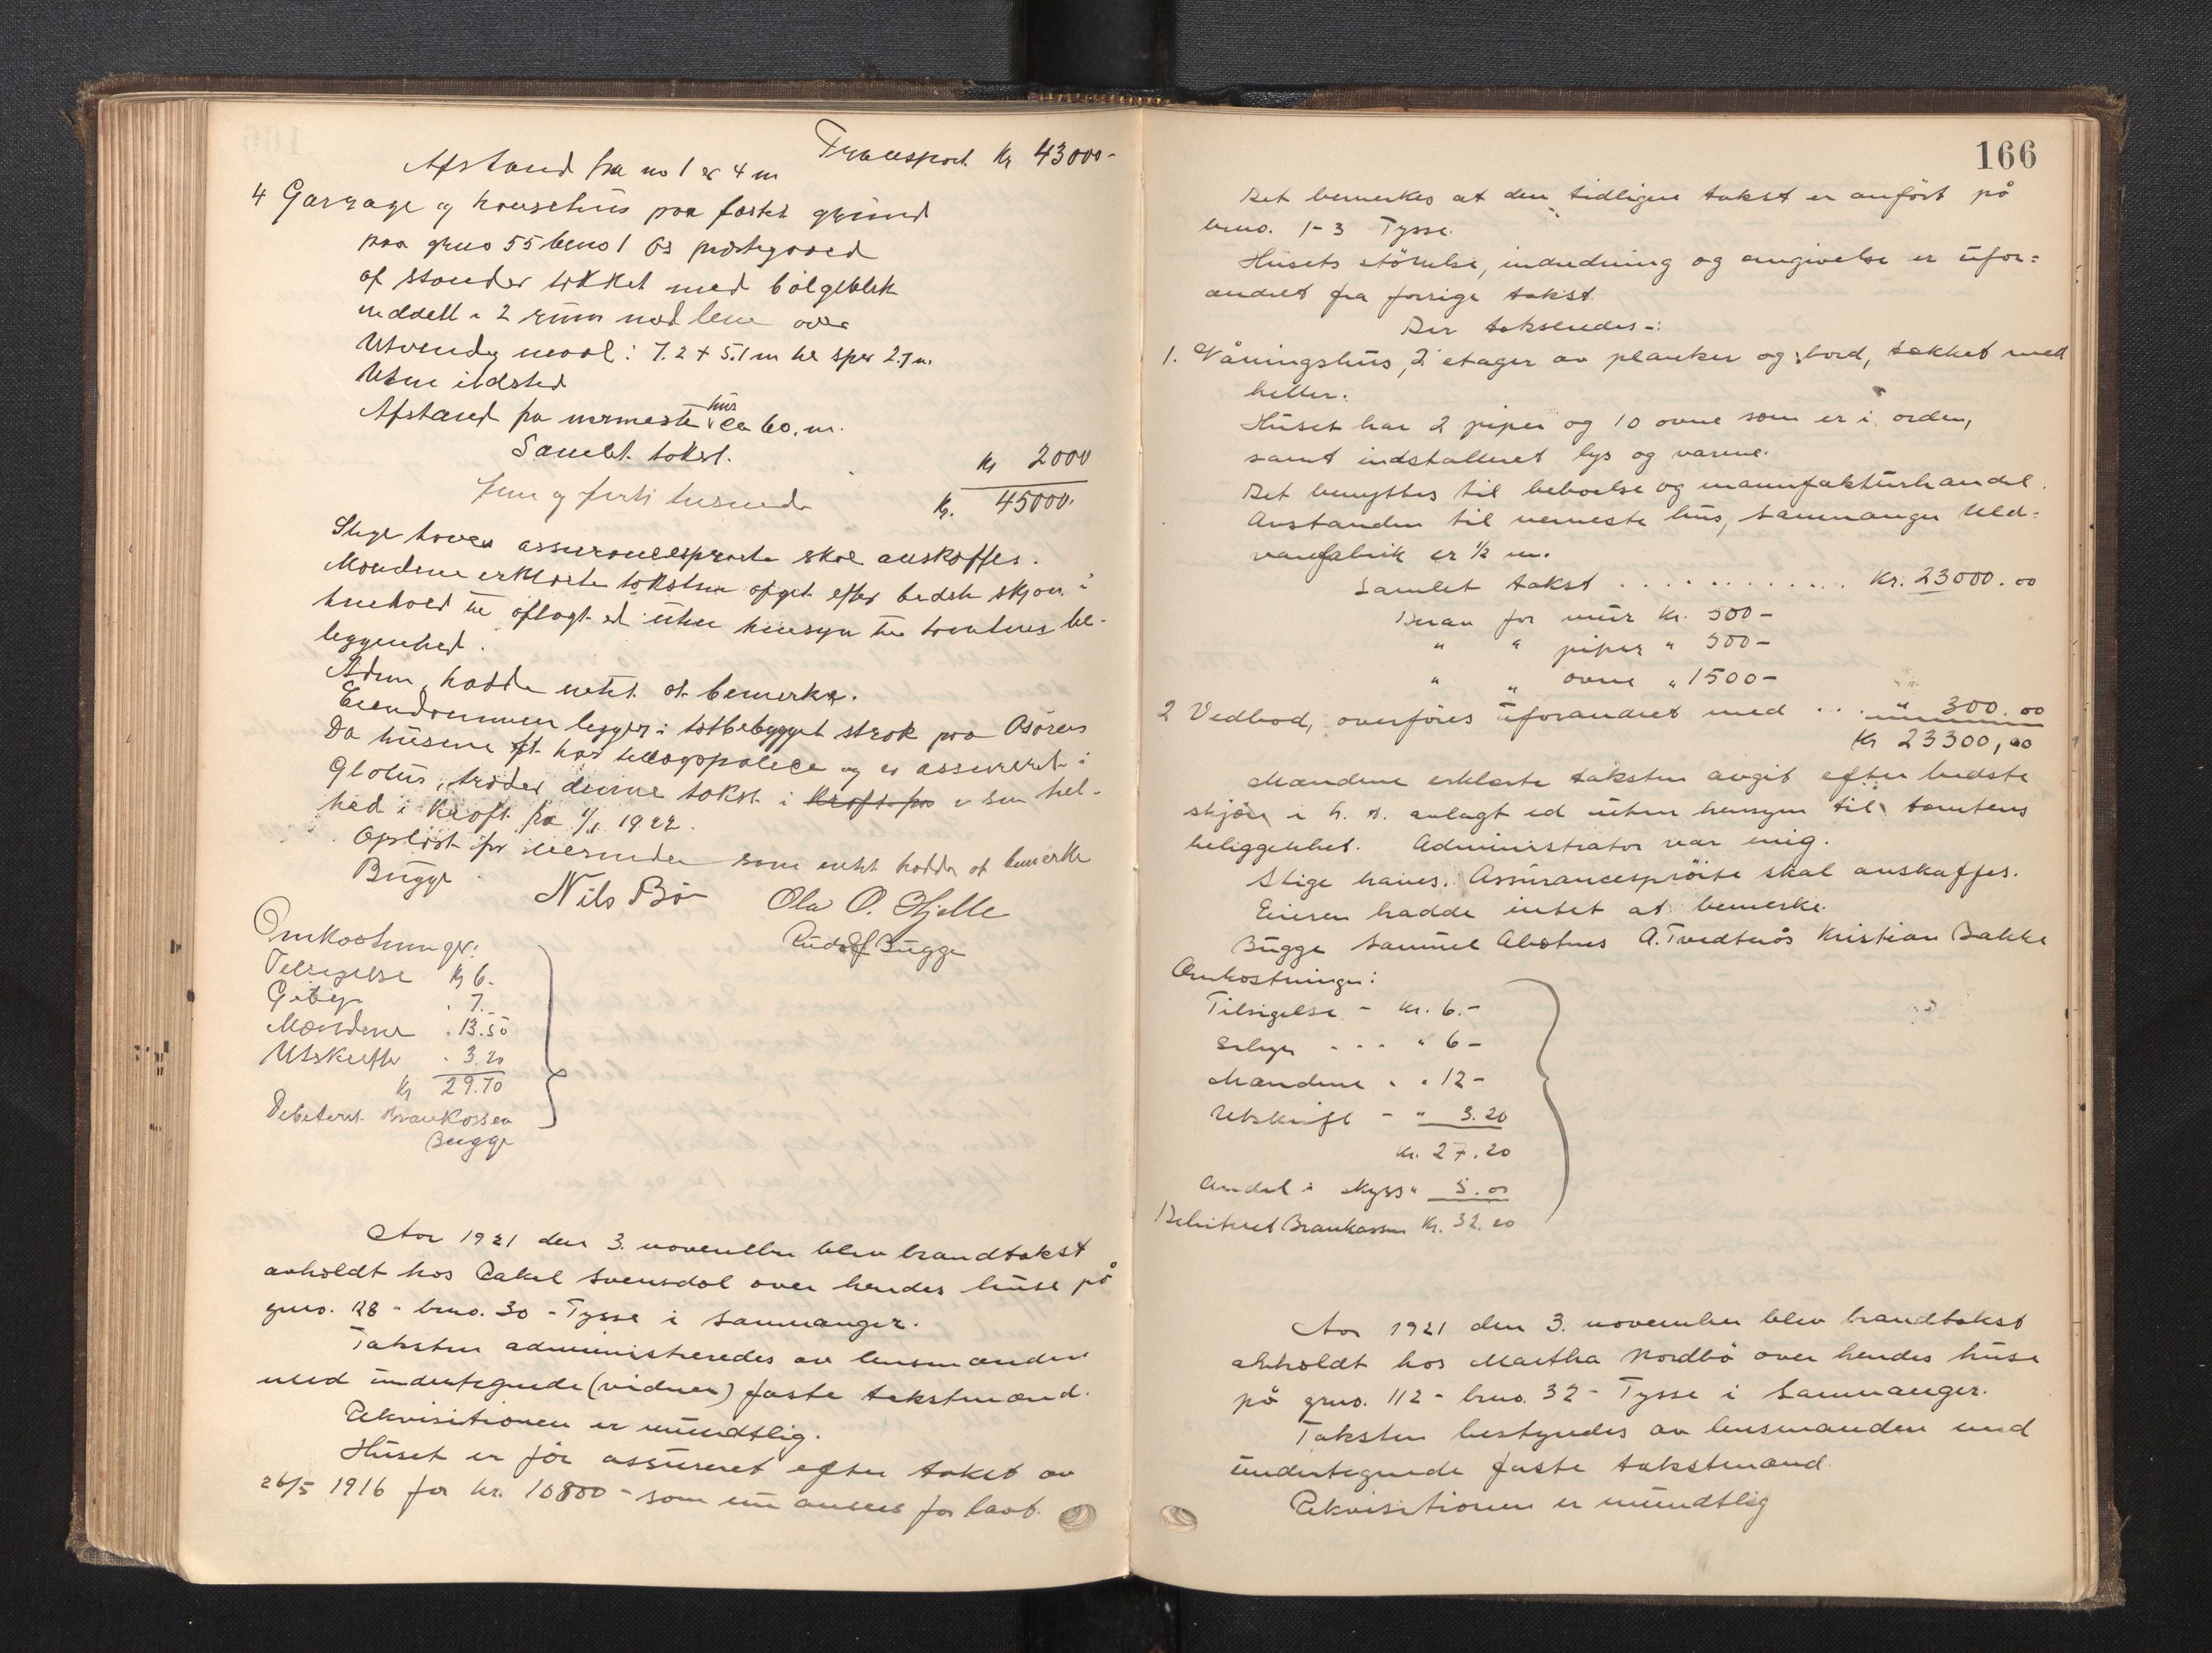 Transport Kr 43000-
Afstand fra no 1 er 4 m
4 Garrage og hønsehus paa festet grund
paa gno 55 bno 1 Os prestegaard
af stender tækket med bølgeblik
inddelt i 2 rum med lem over
Utvendig maal: 7.2 + 5.1 m til sper 2.7 m.
Uten ildsted
Afstand fra nærmeste hus ca 60. m.
Samlet takst. Kr 2000
Fem og førti tusinde Kr. 45000.
Stige haves assurancesprøite skal anskaffes.
Mændene erklærte taksten afgit efter bedste skjøn i
henhold til aflagt ed uten hensyn til tomtens be-
liggenhed.
Adm. hadde intet at bemerke.
Eiendommen ligger i tætbebygget strøk paa Osøren
Da husene ft. har police og er assureret i
Glotus, træder denne takst i kraft fra i sin hel-
hed i kraft fra 1/1 1922.
Oplæst for som intet hadde at bemerke
Bugge Nils Bø Ola O. Hjelle
Rudolf Bugge
Omkostninger:
Tilsigelse Kr 6.
Gebyr " 7.-
Mændene " 13.50
Utskrifter " 3.20
Kr 29.70
Debiteret Brankassen
Bugge
Aar 1921 den 3. november blev brandtakst
avholdt hos Rakel Svensdal over hendes huse på
gno. 128 - bno. 30 - Tysse i Samnanger.
Taksten administreredes av lensmanden
med undertegnede (vidner) faste takstmænd.
Rekvisitionen er mundtlig.
Huset er før assureret efter takst av
26/5 1916 for kr. 10800 - som nu ansees for lavt.
166
Det bemerkes at den tidligere takst er anført på
bno. 1-3 Tysse.
Husets størrelse, indredning og angivelse er ufor=
andret fra forrige takst.
Der takseredes -:
1. Våningshus, 2 etager av planker og bord, tækket med
heller.
Huset har 2 piper og 10 ovne som er i orden,
samt indstalleret lys og varme.
Det benyttes til beboelse og manufakturhandel.
Avstanden til nærmeste hus, Samnanger Uld=
varefabrik er ½ m.
Samlet takst . . . . . . . . . . . . Kr. 23000.00
Derav for mur Kr. 500-
" " piper " 500-
" " ovne " 1500-
2 Vedbod, overføres uforandret med . . . " 300.00
Kr 23300,00
Mændene erklærte taksten avgit efter bedste
skjøn i h. t. avlagt ed uten hensyn til tomtens
beliggenhet. Administrator var enig.
Stige haves. Assurancesprøite skal anskaffes.
Eieren hadde intet at bemerke.
Bugge Samuel A. Tvedtnæs Kristian Bakke
Omkostninger:
Tilsigelse - Kr. 6.-
Gebyr - - - " 6-
Mændene " " 12-
Utskrift - " 3.20
Kr. 27.20
Andel i skyss " 5.00
Debiteret Brankassen Kr. 32.20
Aar 1921 den 3. november blev brandtakst
avholdt hos Martha Nordbø over hendes huse
på gno. 112 - bno. 32 - Tysse i Samnanger.
Taksten bestyredes av lensmanden med
undertegnede faste takstmænd.
Rekvisitionen er mundtlig